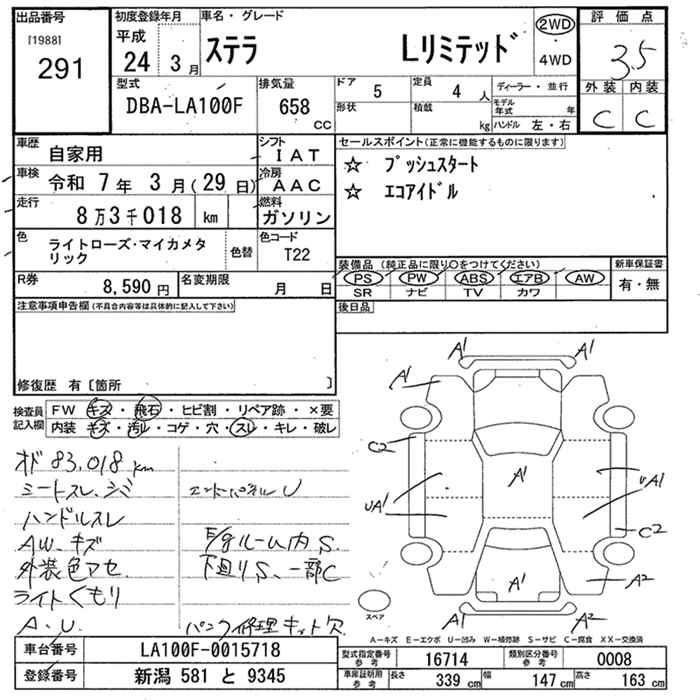 出品番号
[1988]
291
初度登録年月
平成
24年 3月
車名・グレード
ステラ Lリミテッド
2WD
4WD
評価点
3.5
外装 内装
C C
型式
DBA-LA100F
排気量
658 CC
ドア 5
定員 4 人
形状
積載 kg
ディーラー・並行
モデル年式 年
ハンドル 左・右
車歴
自家用
シフト
IAT
車検
令和 7年 3月(29日)
冷房
AAC
走行
8万3千018 km
燃料
ガソリン
色
ライトローズ・マイカメタリック
色替
色コード
T22
R券
8,590 円
名変期限
月 日
セールスポイント(正常に機能するものに限ります)
☆ プッシュスタート
☆ エコアイドル
装備品(純正品に限り○をつけてください)
PS PW ABS エアB AW
SR ナビ TV カワ
新車保証書
有・無
後日品
注意事項申告欄(不具合内容等は具体的に記入して下さい)
修復歴 有〔箇所 〕
検査員記入欄
FW キズ・飛石・ヒビ割・リペア跡・×要
内装 キズ・汚れ・コゲ・穴・スレ・キレ・破レ
オド 83,018 km
シートスレ、シミ
ハンドルスレ
AW.キズ
外装色アセ
ライトくもり
A.U.
エンドパネルU
E/gルーム内S.
下廻りS、一部C
パンク修理キット欠
A1 A1
A1
C2
A1
UA1
UA1
C2
A1
A2
A1 A2
スペア
A-キズ E-エクボ U-凹み W-補修跡 S-サビ C-腐食 XX-交換済
車台番号 LA100F-0015718
登録番号 新潟 581 と 9345
型式指定番号 参考 16714
類別区分番号 参考 0008
車庫証明用 参考 長さ 339 cm 幅 147 cm 高さ 163 cm